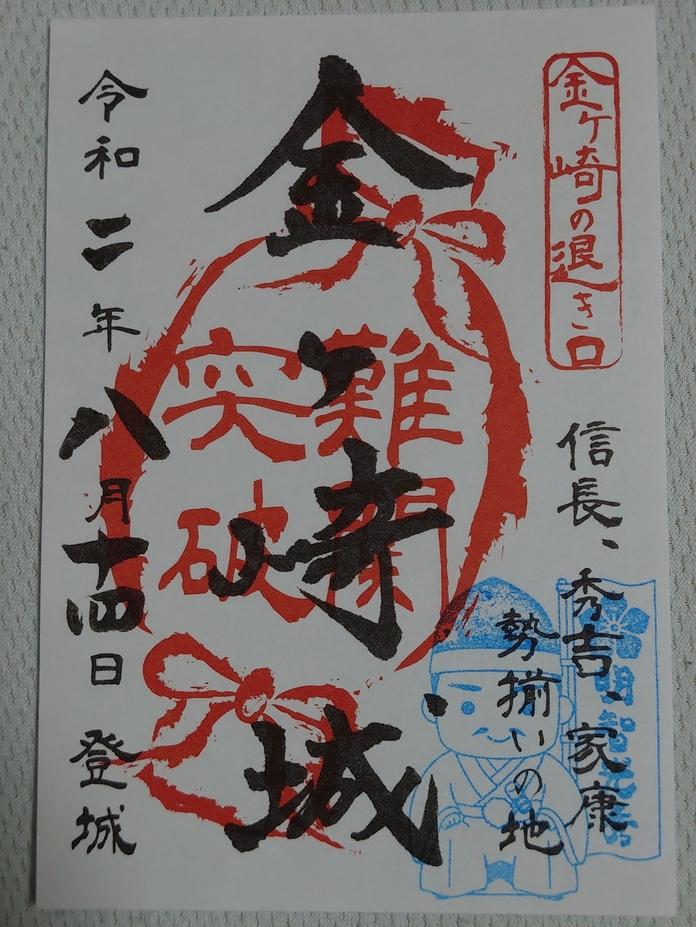 金ヶ崎の退き口
信長、秀吉、家康
勢揃いの地
明智光秀
金ヶ崎城
難関
突破
令和二年八月十四日登城